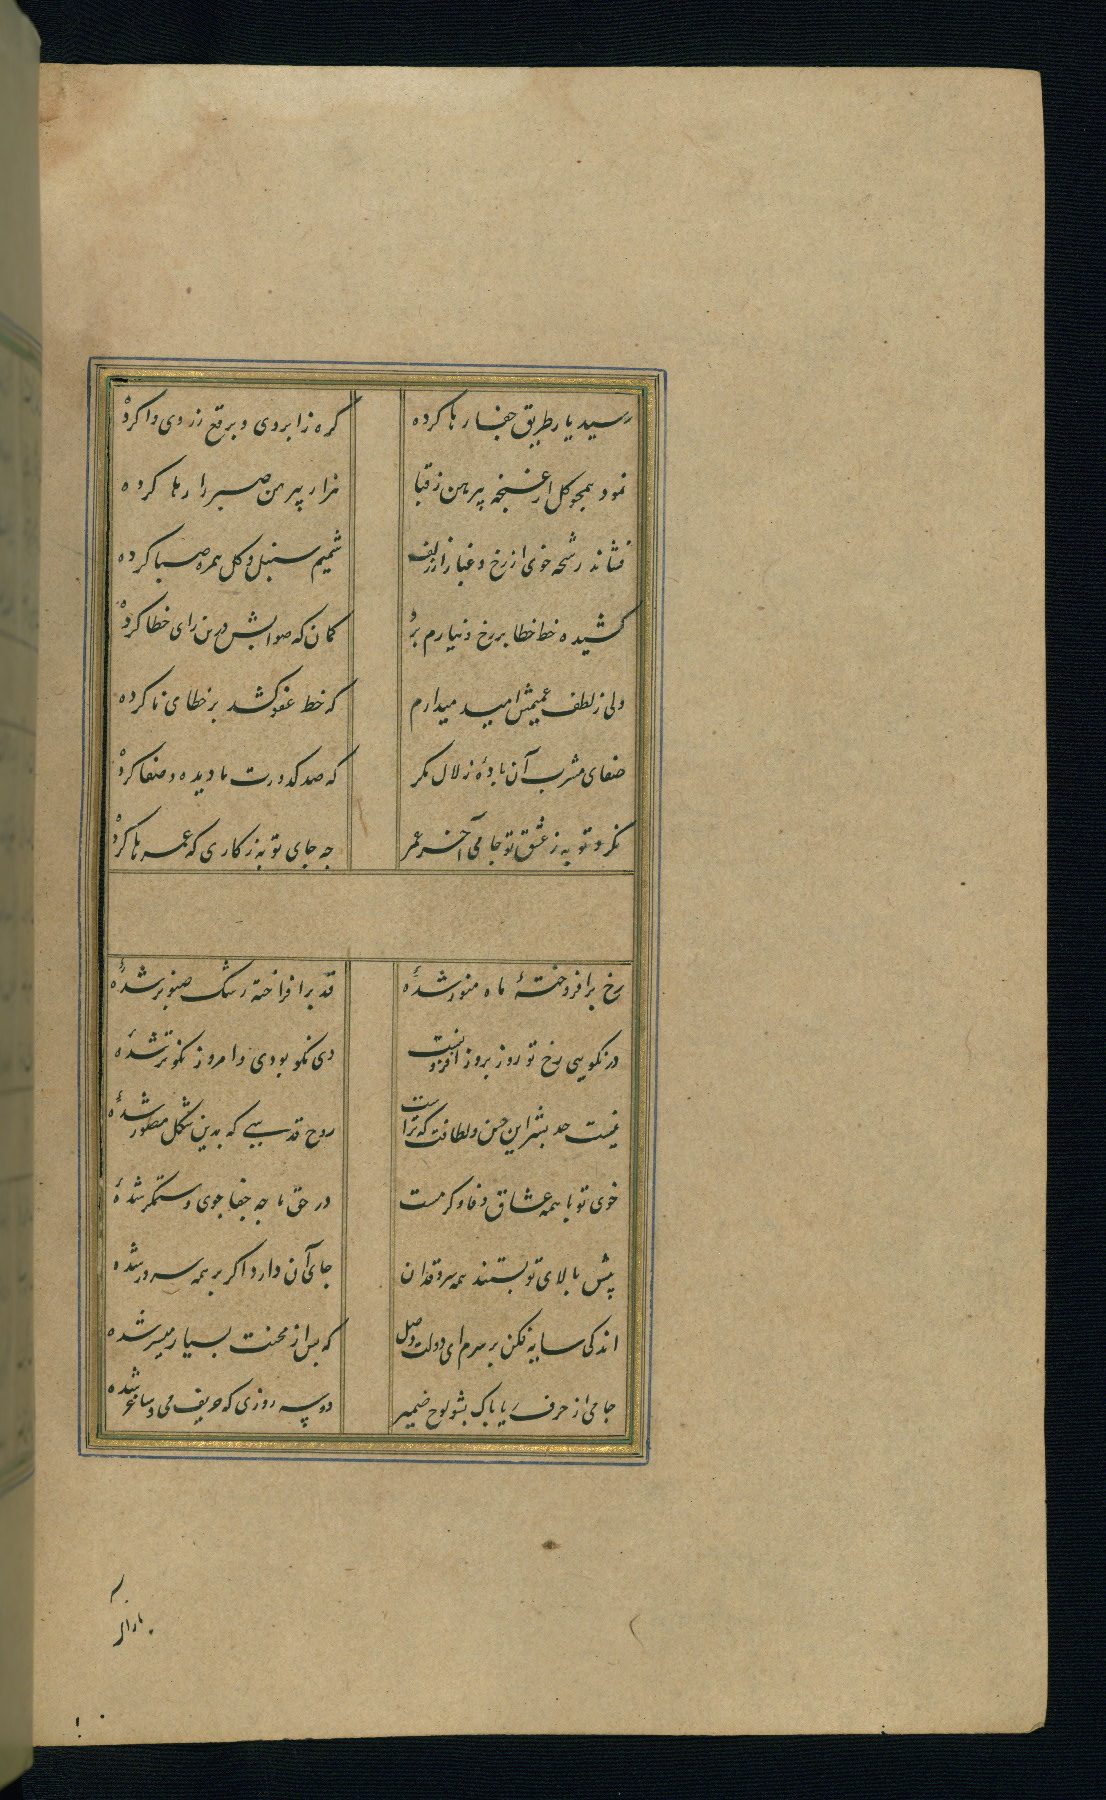 رسید یار طریق جفا رها کرده
کره ز ابروی و برقع ز روی وا کرده
نمود همچو کل از غنچه پیرهن ز قبا
هزار پیرهن صبر را رها کرده
فشانده رشحه خوی از رخ و غبار از زلف
شمیم سنبل و کل همره صبا کرده
کشیده خط خطا بر رخ و نیارم برد
کمان که صوابش درین رای خطا کرده
ولی ز لطف عمیمش امید میدارم
که خط عفو کشد بر خطای نا کرده
صفای مشرب آن بادهٔ زلال نکر
که صد کدورت ما دیده و صفا کرده
نکرد توبه ز عشق تو جامی آخر عمر
چه جای توبه ز کاری که عمرها کرده
رخ برافروختهٔ ماه منور شدهٔ
قد برافراخته رشک صنوبر شدهٔ
در نکویی رخ تو روز بروز افزونست
دی نکو بودی و امروز نکوتر شدهٔ
نیست حد بشر این حسن و لطافت که تراست
روح قدسیی که بدین شکل مصور شدهٔ
خوی تو با همه عشاق وفا و کرمست
در حق ما چه جفا جوی و ستمکر شدهٔ
پیش بالای تو پستند همه سرو قدان
جای آن دارد اکر بر همه سرور شدهٔ
اندکی سایه فکن بر سرم ای دولت وصل
که پس از محنت بسیار میسر شدهٔ
جامی از حرف ریا پاک بشو لوح ضمیر
دو سه روزی که حریف می و ساغر شدهٔ